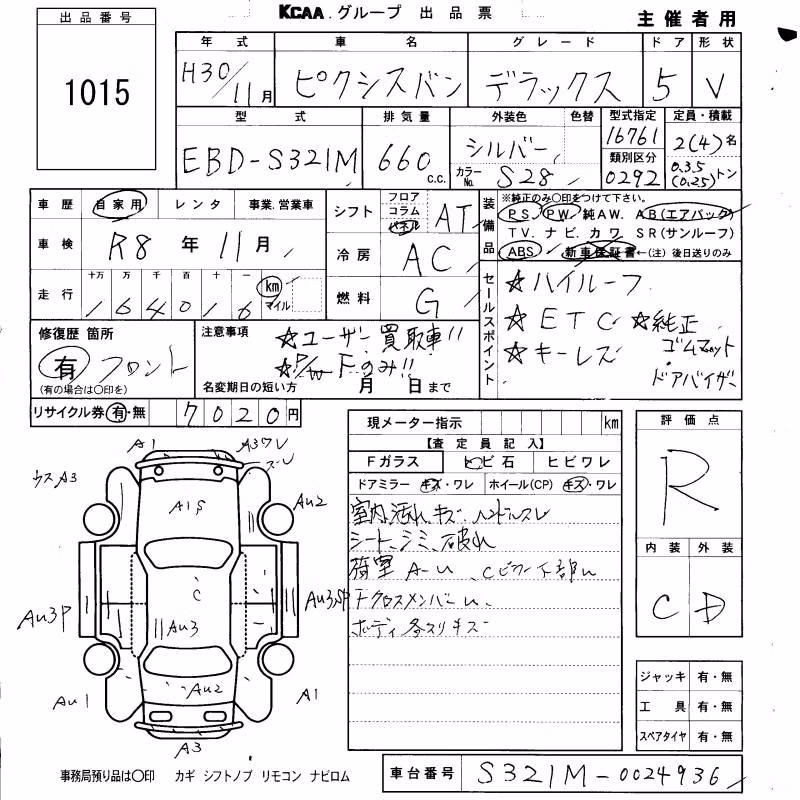 KCAA.グループ 出品票
主催者用
出品番号
1015
年式 車名 グレード ドア 形状
H30/11月 ピクシスバン デラックス 5 V
型式 排気量 外装色 色替 型式指定 定員・積載
16761 2(4)名
EBD-S321M 660c.c. シルバー 類別区分 0.35
カラーNo. S28 0292 (0.25)トン
車歴 自家用 レンタ 事業.営業車
シフト フロア コラム パネル AT
装備品 ※純正のみ〇印をつけて下さい。
PS. PW. 純AW. AB(エアバック)
TV. ナビ. カワ. SR(サンルーフ)
ABS. 新車保証書←(注)後日送りのみ
車検 R8年11月
冷房 AC
走行 十万 万 千 百 十 一 km マイル
164016
燃料 G
セールスポイント
☆ハイルーフ
☆ETC ☆純正
☆キーレス ゴムマット
ドアバイザー
修復歴 箇所
有 フロント
(有の場合は〇印を)
注意事項
☆ユーザー買取車!!
☆P/W Fのみ!!
名変期日の短い方 月 日まで
リサイクル券 有・無 7020円
現メーター指示 km
【査定員記入】
Fガラス トビ石 ヒビワレ
ドアミラー キズ・ワレ ホイール(CP) キズ・ワレ
室内汚れ、キズ、ハンドルスレ
シート、シミ、破れ
荷室 A-U、Cピラー下部U
Fクロスメンバー U、
ボディ各スリキズ
評価点
R
内装 外装
C D
A1
A3ワレ
ズレ
ウスA3
A1S
Au2
C
Au3P
Au3
Au3SP
Au1
Au2
A1
A3
ジャッキ 有・無
工具 有・無
スペアタイヤ 有・無
事務局預り品は〇印 カギ シフトノブ リモコン ナビロム
車台番号 S321M-0024936